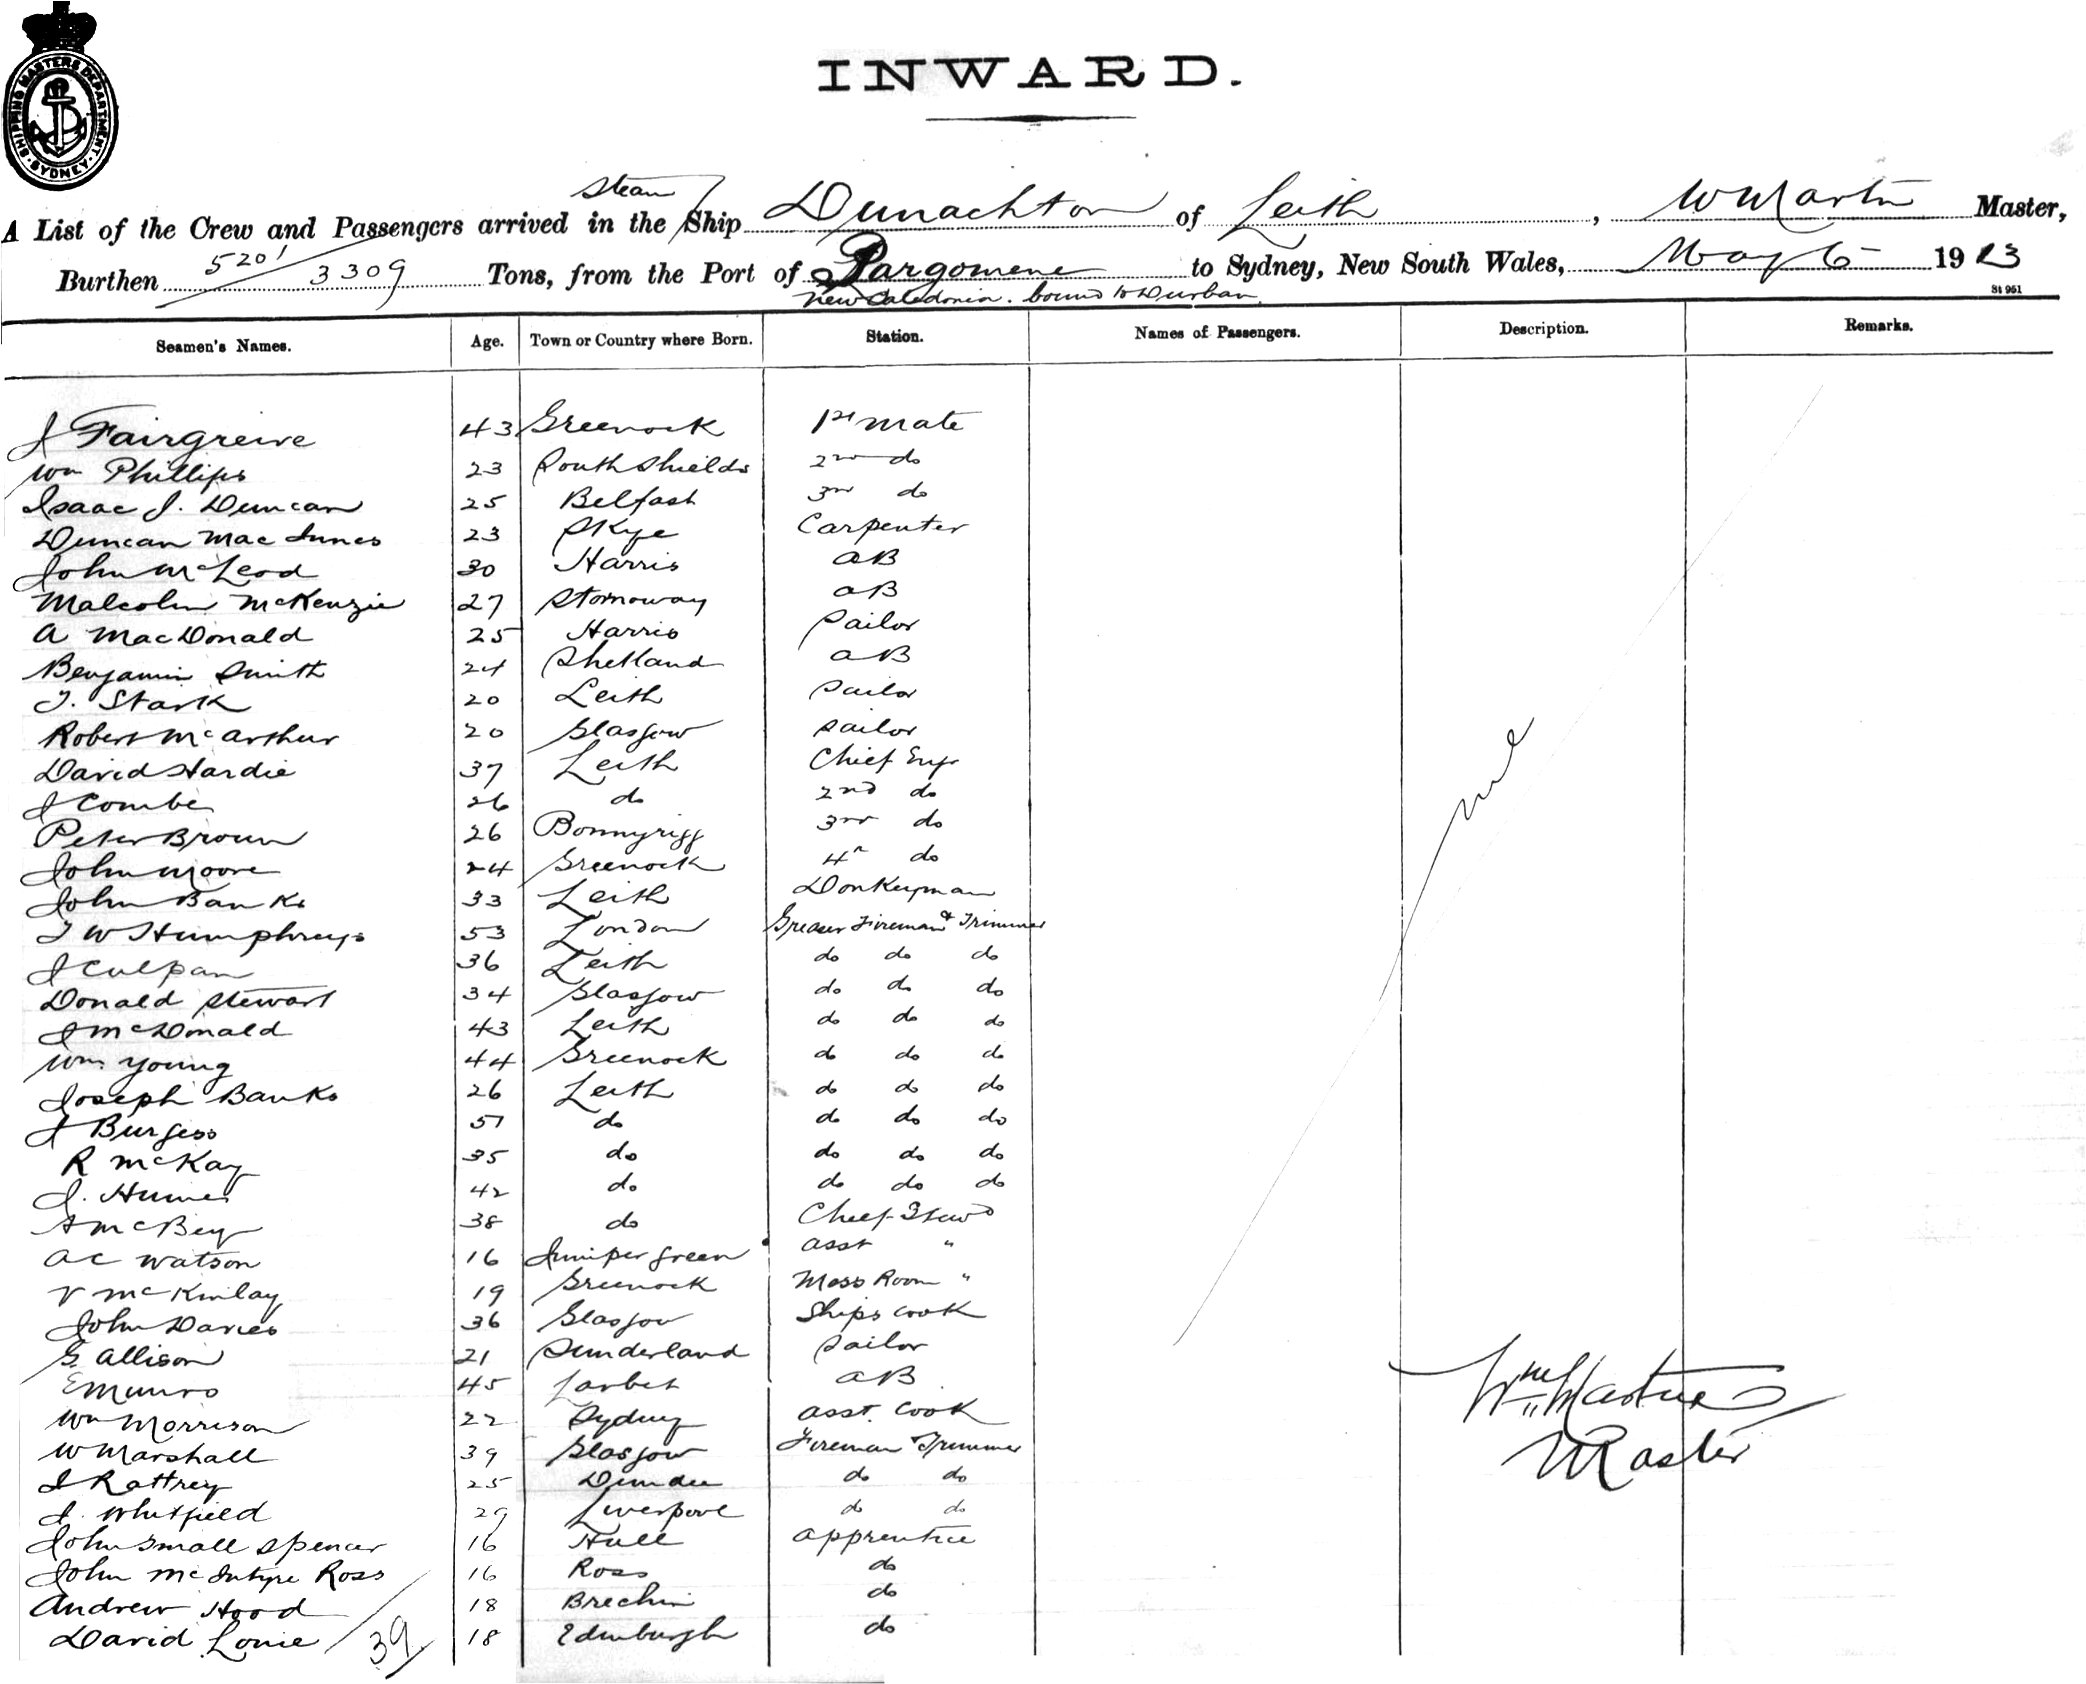 SHIPPING MASTERS DEPARTMENT · SYDNEY ·
INWARD.
Steam
A List of the Crew and Passengers arrived in the Ship Dunachton of Leith, W Martin Master,
Burthen 5201 3309 Tons, from the Port of Pargomene to Sydney, New South Wales, May 6 1913
New Caledonia. bound to Durban
St 951
Seamen's Names. Age. Town or Country where Born. Station. Names of Passengers. Description. Remarks.
J Fairgreive 43 Greenock 1st Mate
Wm Phillips 23 South Shields 2nd do
Isaac J. Duncan 25 Belfast 3rd do
Duncan Mac Innes 23 Skye Carpenter
John McLeod 30 Harris AB
Malcolm McKenzie 27 Stornoway AB
A MacDonald 25 Harris Sailor
Benjamin Smith 24 Shetland AB
J. Stark 20 Leith Sailor
Robert McArthur 20 Glasgow Sailor
David Hardie 37 Leith Chief Engr
J Combe 26 do 2nd do
Peter Brown 26 Bonnyrigg 3rd do
John Moore 24 Greenock 4th do
John Banks 33 Leith Donkeyman
J W Humphreys 53 London Greaser Fireman & Trimmer
J Culpan 36 Leith do do do
Donald Stewart 34 Glasgow do do do
J McDonald 43 Leith do do do
Wm. Young 44 Greenock do do do
Joseph Banks 26 Leith do do do
J Burgess 57 do do do do
R McKay 35 do do do do
J. Hume 42 do do do do
A McBey 38 do Chief Stewd
AC Watson 16 Juniper green Asst "
V McKinlay 19 Greenock Mess Room "
John Davies 36 Glasgow Ships Cook
G. Allison 21 Sunderland Sailor
E Munro 45 Tarbet AB
Wm Morrison 22 Sydney Asst. Cook
W Marshall 39 Glasgow Fireman & Trimmer
J Rattrey 25 Dundee do do
J. Whitfield 29 Liverpool do do
John Small Spencer 16 Hull Apprentice
John McIntyre Ross 16 Ross do
Andrew Hood 18 Brechin do
David Lowie 18 Edinburgh do
39
nil
Wm Martin
Master